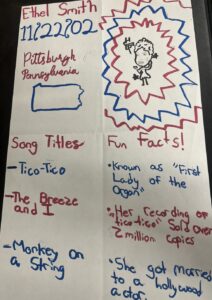 Ethel Smith
11/22/02
Pittsburgh
Pennsylvania
Song Titles
-Tico-Tico
-The Breeze
and I
-Monkey on
a String
Fun Facts!
•Known as "First
Lady of the
Organ"
•"Her recording of
tico-tico" sold over
2 million copies
•She got married
to a hollywood
actor